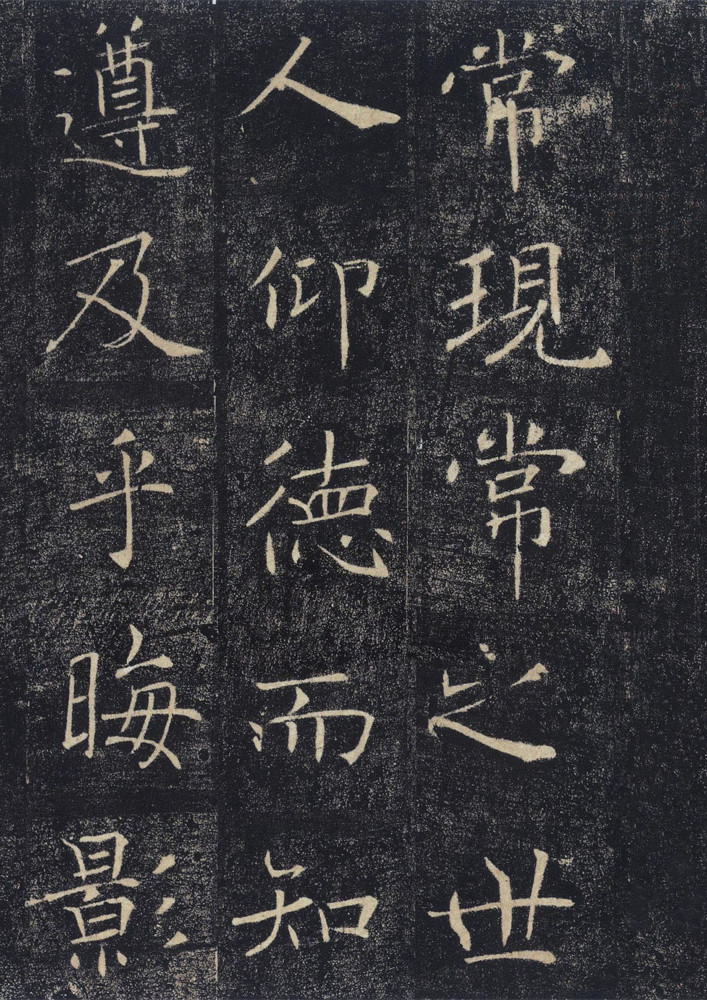 常現常之世
人仰德而知
遵及乎晦影